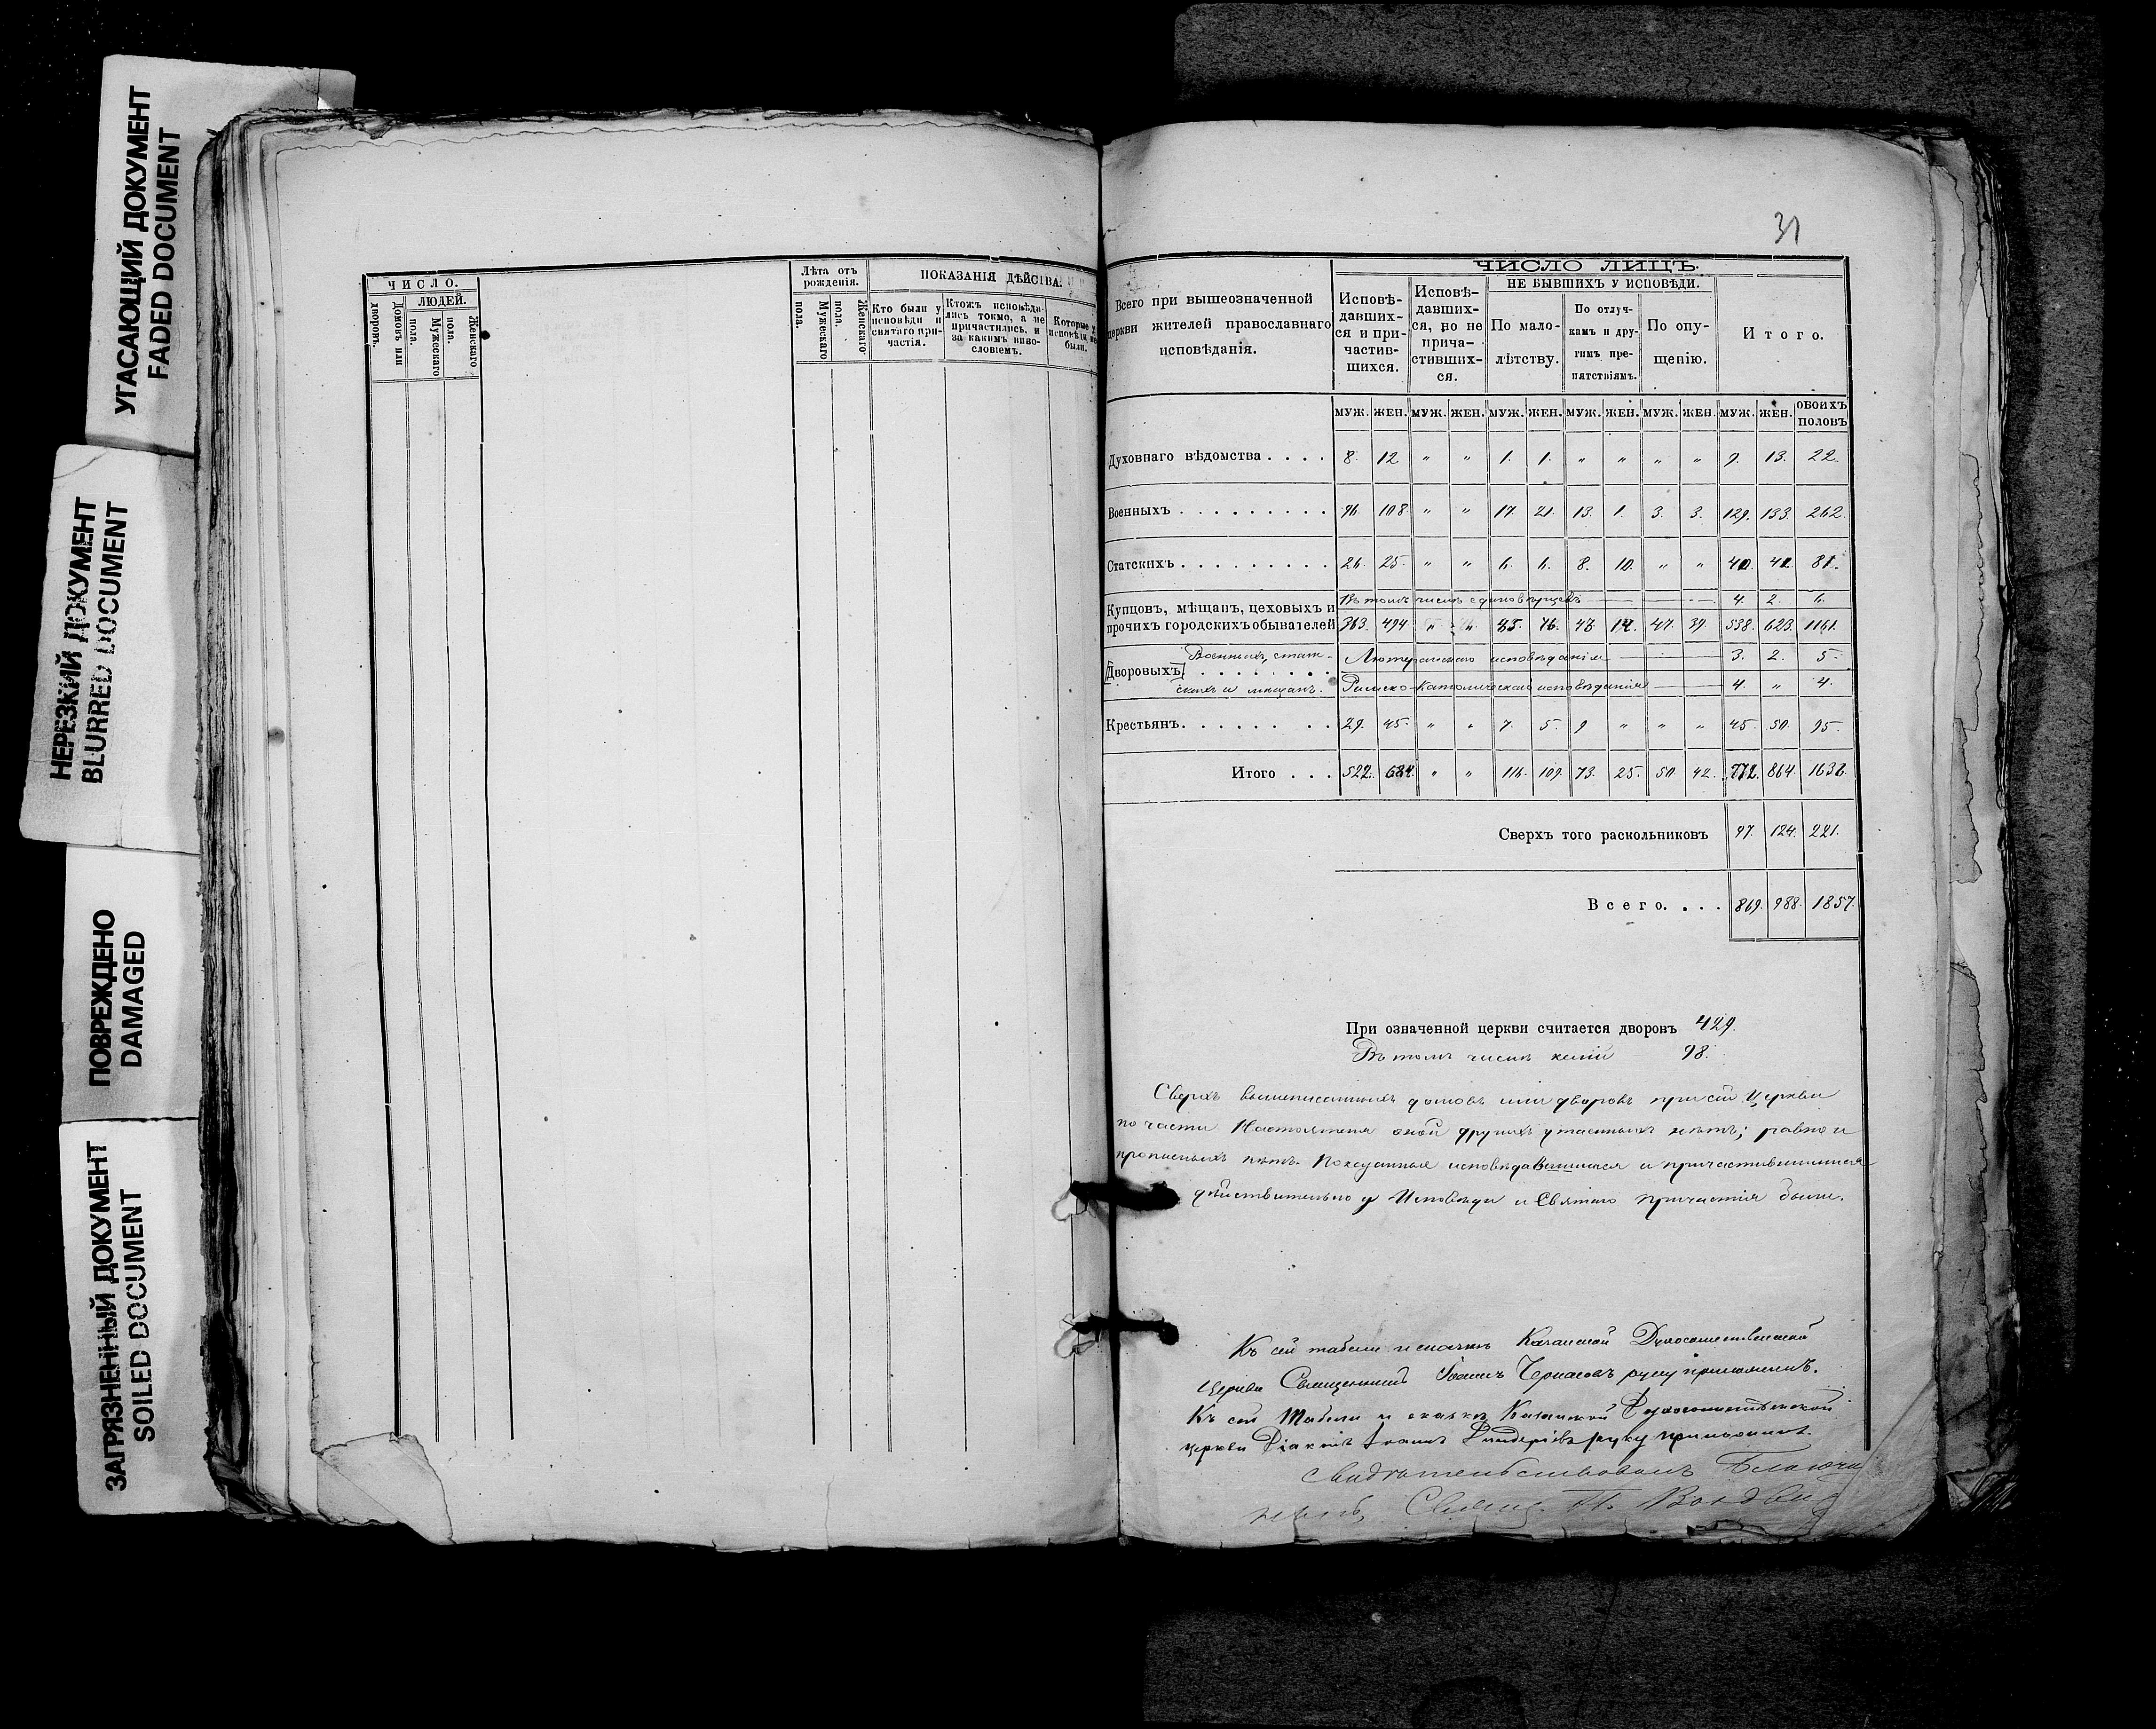 УГАСАЮЩИЙ ДОКУМЕНТ
FADED DOCUMENT
НЕРЕЗКИЙ ДОКУМЕНТ
BLURRED DOCUMENT
ПОВРЕЖДЕНО
DAMAGED
ЗАГРЯЗНЕННЫЙ ДОКУМЕНТ
SOILED DOCUMENT
ЧИСЛО.
Домовъ или дворовъ.
ЛЮДЕЙ.
Мужескаго пола.
Женскаго пола.
Лѣта отъ рожденія.
Мужескаго пола.
Женскаго пола.
ПОКАЗАНІЯ ДѢЙСТВА.
Кто были у исповѣди и святаго причастія.
Ктожъ исповѣдались токмо, а не причастились, и за какимъ винословіемъ.
Которые у исповѣди не были.
31
Всего при вышеозначенной церкви жителей православнаго исповѣданія.
ЧИСЛО ЛИЦЪ.
Исповѣдавшихся и причастившихся.
Исповѣдавшихся, но не причастившихся.
НЕ БЫВШИХЪ У ИСПОВѢДИ.
По малолѣтству.
По отлучкамъ и другимъ препятствіямъ.
По опущенію.
Итого.
МУЖ. ЖЕН. МУЖ. ЖЕН. МУЖ. ЖЕН. МУЖ. ЖЕН. МУЖ. ЖЕН. МУЖ. ЖЕН. ОБОИХЪ ПОЛОВЪ
Духовнаго вѣдомства . . . . 8. 12 " " 1. 1. " " " " 9. 13. 22.
Военныхъ . . . . . . . . . 96. 108. " " 17. 21. 13. 1. 3. 3. 129. 133. 262.
Статскихъ . . . . . . . . . 26. 25. " " 6. 6. 8. 10. " " 40. 41. 81.
Въ томъ числѣ единовѣрцевъ 4. 2. 6.
Купцовъ, мѣщанъ, цеховыхъ и прочихъ городскихъ обывателей 363. 494 " " 85. 76. 43. 14. 47. 39. 538. 623. 1161.
Военныхъ, стат-
Дворовыхъ . . . . . . .
скихъ и мѣщанъ.
Лютеранскаго исповѣданія 3. 2. 5.
Римско-Католическаго исповѣданія 4. " 4.
Крестьянъ . . . . . . . . 29. 45. " " 7. 5. 9 " " " 45. 50. 95.
Итого . . . 522. 684. " " 116. 109. 73. 25. 50. 42. 772. 864. 1636.
Сверхъ того раскольниковъ 97. 124. 221.
Всего. . . . 869. 988. 1857.
При означенной церкви считается дворовъ 429.
Въ томъ числѣ келій 98.
Сверхъ вышеписанныхъ домовъ или дворовъ при сей Церкви
по части Настоятеля оной другихъ утаенныхъ нѣтъ; равно и
прописныхъ нѣтъ. Показанные исповѣдавшимися и причастившимися
дѣйствительно у Исповѣди и Святаго причастія были.
Къ сей табели и сказкѣ Казанской Духосошественской
Церкви Священникъ Іоаннъ руку приложилъ.
Къ сей Табели и сказкѣ Казанской Духосошественской
церкви Діаконъ Іоаннъ руку приложилъ.
Свидѣтельствовалъ Благочин
Свящ. П.